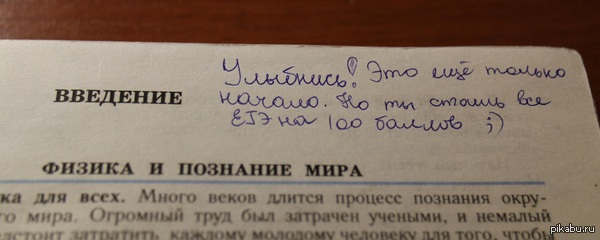 Улыбнись! Это ещё только
начало. Но ты сдашь все
ЕГЭ на 100 баллов ;)
ВВЕДЕНИЕ
ФИЗИКА И ПОЗНАНИЕ МИРА
ка для всех. Много веков длится процесс познания окру-
го мира. Огромный труд был затрачен учеными, и немалый
дстоит затратить каждому молодому человеку для того, чтобы
pikabu.ru